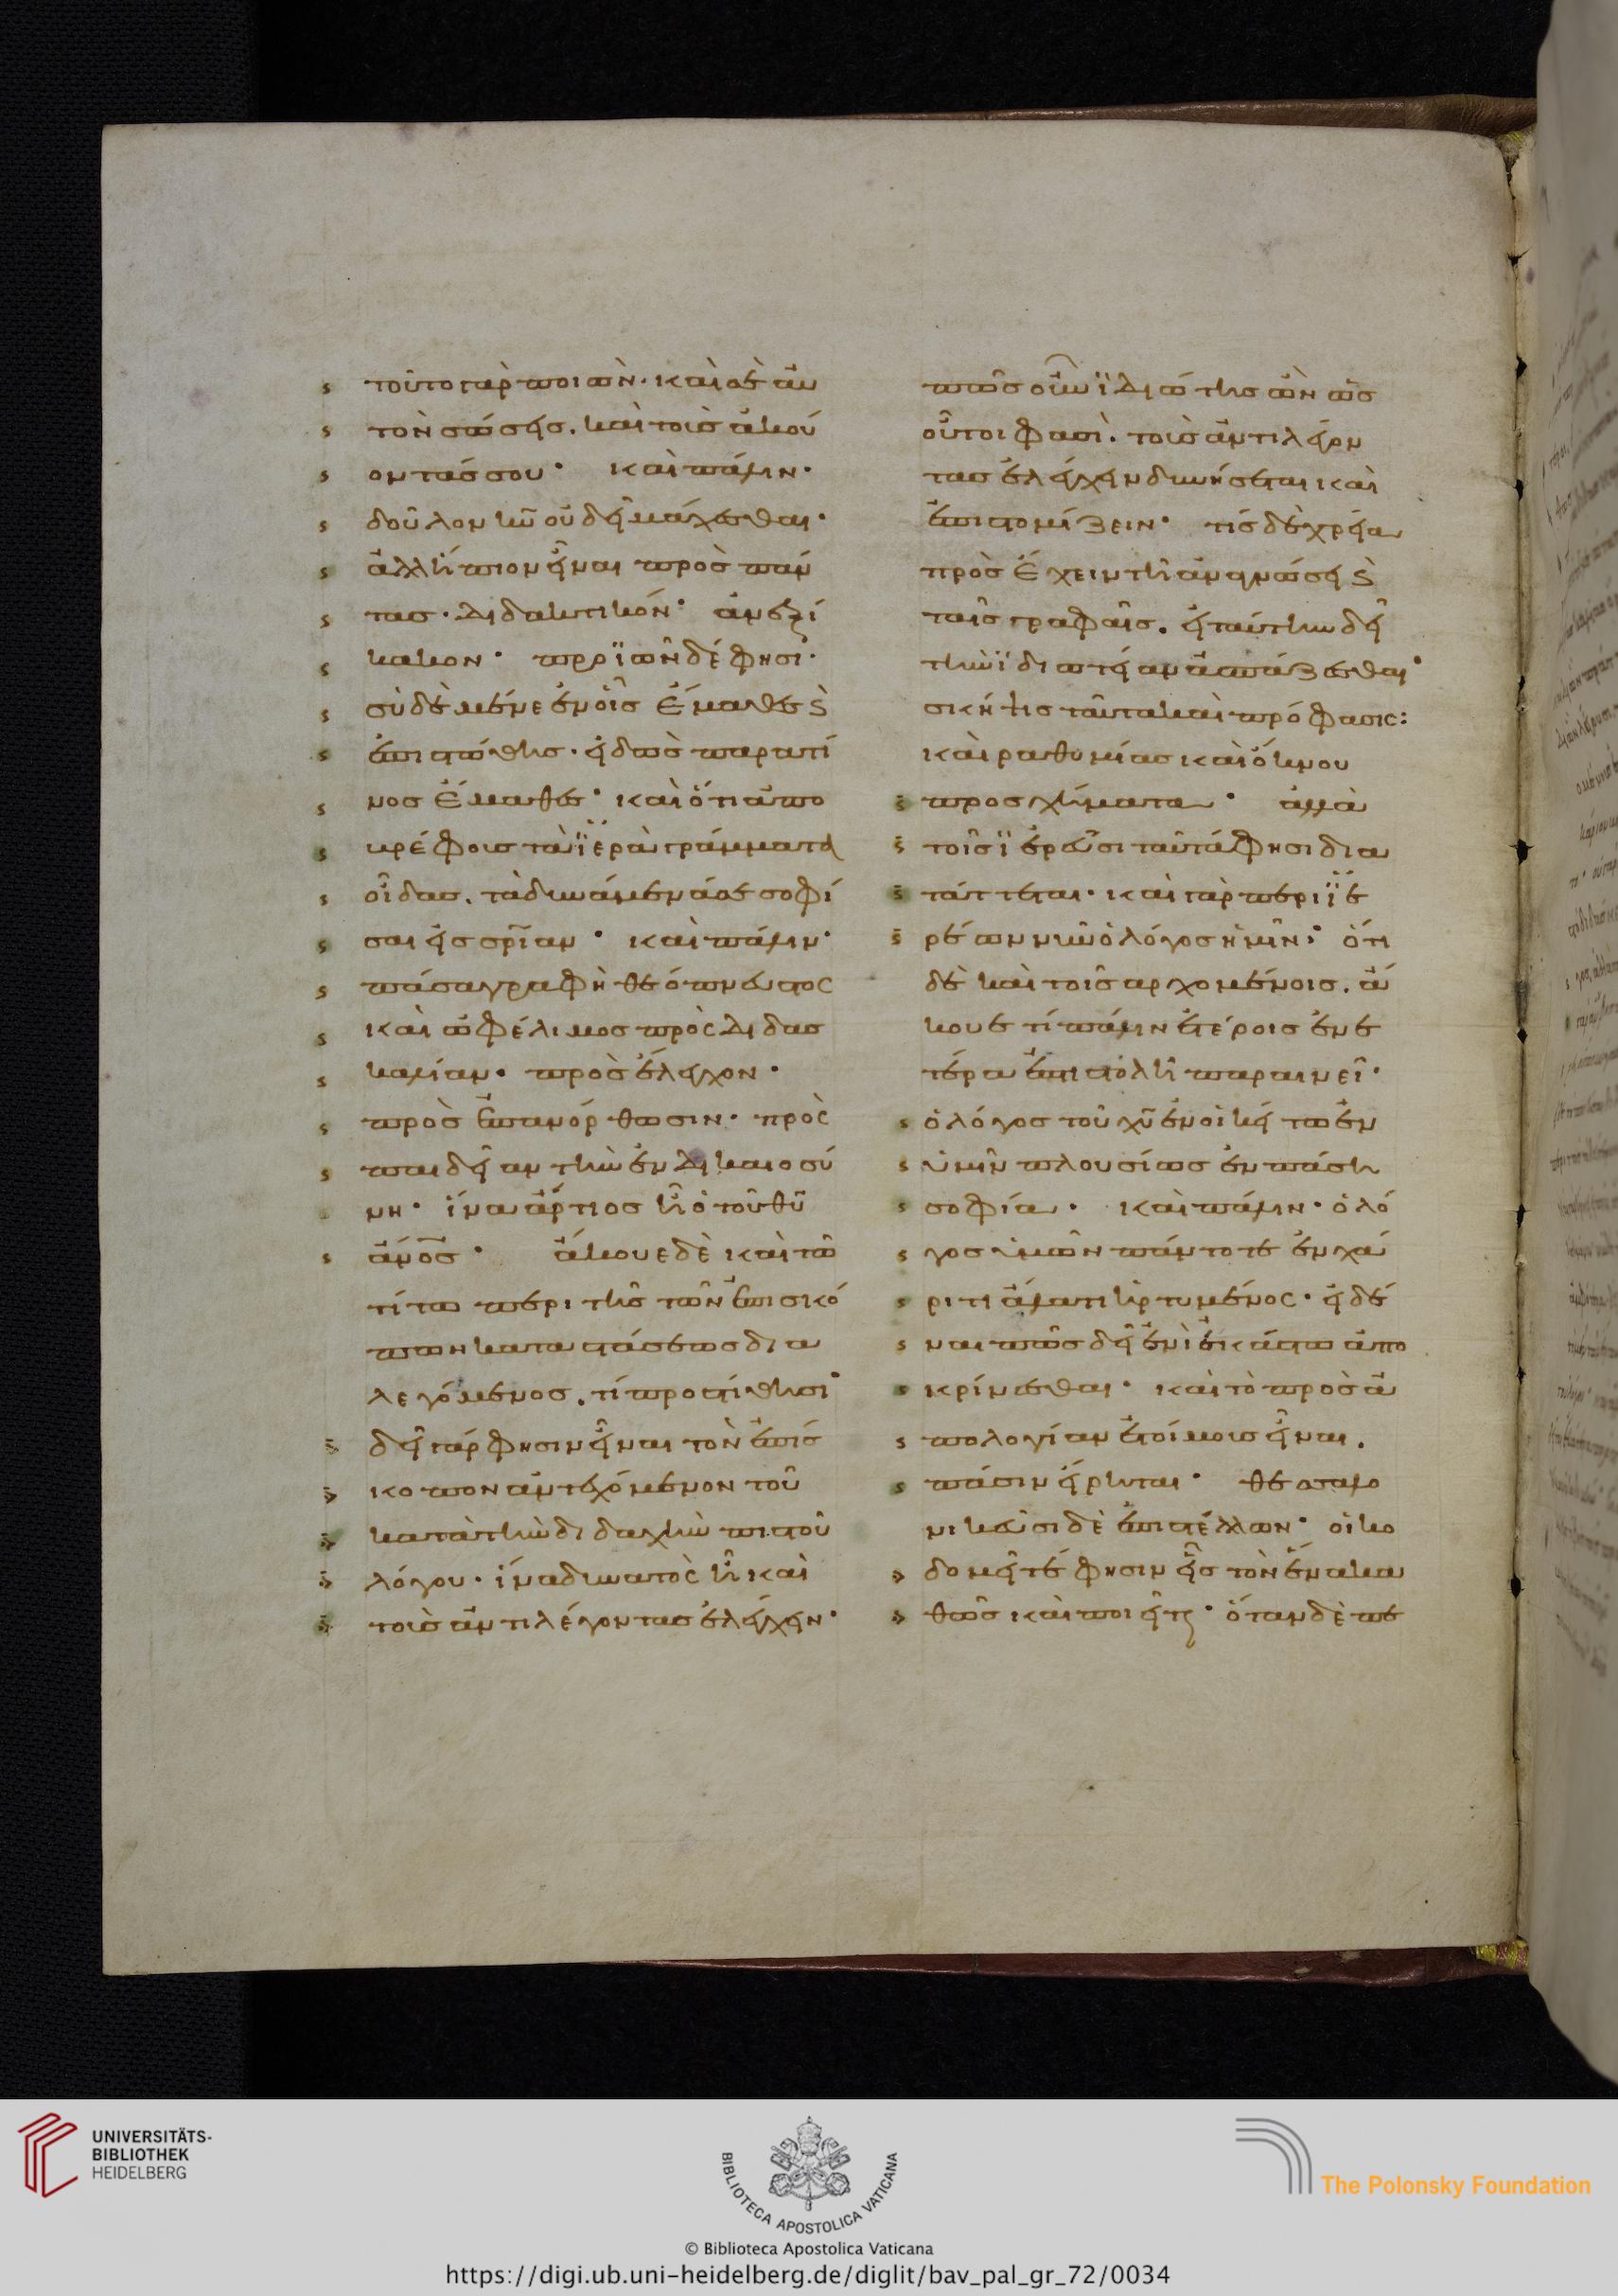 τοῦτο γὰρ ποιῶν· καὶ σεαυ
τὸν σώσεις. καὶ τοὺς ἀκού
οντάς σου· καὶ πάλιν·
δοῦλον κῦ οὐ δεῖ μάχεσθαι·
ἀλλ' ἤπιον εἶναι πρὸς πάν
τας· διδακτικόν· ἀνεξί
κακον· προϊὼν δέ φησι·
σὺ δὲ μένε ἐν οἷς ἔμαθες
ἐπιστώθης· εἰδὼς παρὰ τί
νος ἔμαθες· καὶ ὅτι ἀπὸ
βρέφους τὰ ϊερὰ γράμματα
οἶδας. τὰ δυνάμενά σε σοφί
σαι εἰς σρίαν· καὶ πάλιν·
πᾶσα γραφὴ θεόπνευστος
καὶ ὠφέλιμος πρὸς διδασ
καλίαν· πρὸς ἔλεγχον·
πρὸς ἐπανόρθωσιν· πρὸς
παιδείαν τὴν ἐν δικαιοσύ
νη· ἵνα ἄρτιος ἦ ὁ τοῦ θῦ
ἄνος· ἄκουε δὲ καὶ τῶ
τίτω περὶ τῆς τῶν ἐπισκό
πων καταστάσεως δια
λεγόμενος. τί προστίθησι·
δεῖ γάρ φησιν εἶναι τὸν ἐπίσ
κοπον ἀντεχόμενον τοῦ
κατὰ τὴν διδαχὴν πιστοῦ
λόγου· ἵνα δυνατὸς ἦ καὶ
τοὺς ἀντιλέγοντας ἐλέγχειν·
πῶς οὖν ϊδιώτης ὢν ὥς
οὗτοι φασὶ. τοὺς ἀντιλέγον
τας ἐλέγχειν δυνήσεται καὶ
ἐπιστομίζειν· τίς δὲ χρεία
προσέχειν τῆ ἀναγνώσει ϗ
ταῖς γραφαῖς. εἰ ταύτην δεῖ
τὴν ϊδιωτείαν ἀσπάζεσθαι·
σκῆψις ταῦτα καὶ πρόφασις:
καὶ ραθυμίας καὶ ὄκνου
προσχήματα· ἀλλὰ
τοῖς ϊερεῦσι ταῦτά φησι δια
τάττεται· καὶ γὰρ περὶ ϊε
ρέων νῦν ὁ λόγος ἡμῖν· ὅτι
δὲ καὶ τοῖς αρχομένοις. ἄ
κουε τί πάλιν ἑτέροις ἐν ἑ
τέρα ἐπιστολῆ παραινεῖ·
ὁ λόγος τοῦ χῦ ἐνοικείτω ἐν
ὑμῖν πλουσίως ἐν πάση
σοφία· καὶ πάλιν· ὁ λό
γος ὑμῶν πάντοτε ἐν χά
ριτι ἅλατι ἠρτυμένος· εἰδέ
ναι πῶς δεῖ ἑνὶ ἑκάστω ἀπο
κρίνεσθαι· καὶ τὸ πρὸς ἀ
πολογίαν ἑτοίμους εἶναι.
πάσιν εἴρηται· θεσσαλο
νικεῦσι δὲ ἐπιστέλλων· οἰκο
δομεῖτέ φησιν εἷς τὸν ἕνα κα
θὼς καὶ ποιεῖτε· ὅταν δὲ πε
UNIVERSITÄTS-
BIBLIOTHEK
HEIDELBERG
BIBLIOTECA APOSTOLICA VATICANA
© Biblioteca Apostolica Vaticana
The Polonsky Foundation
https://digi.ub.uni-heidelberg.de/diglit/bav_pal_gr_72/0034